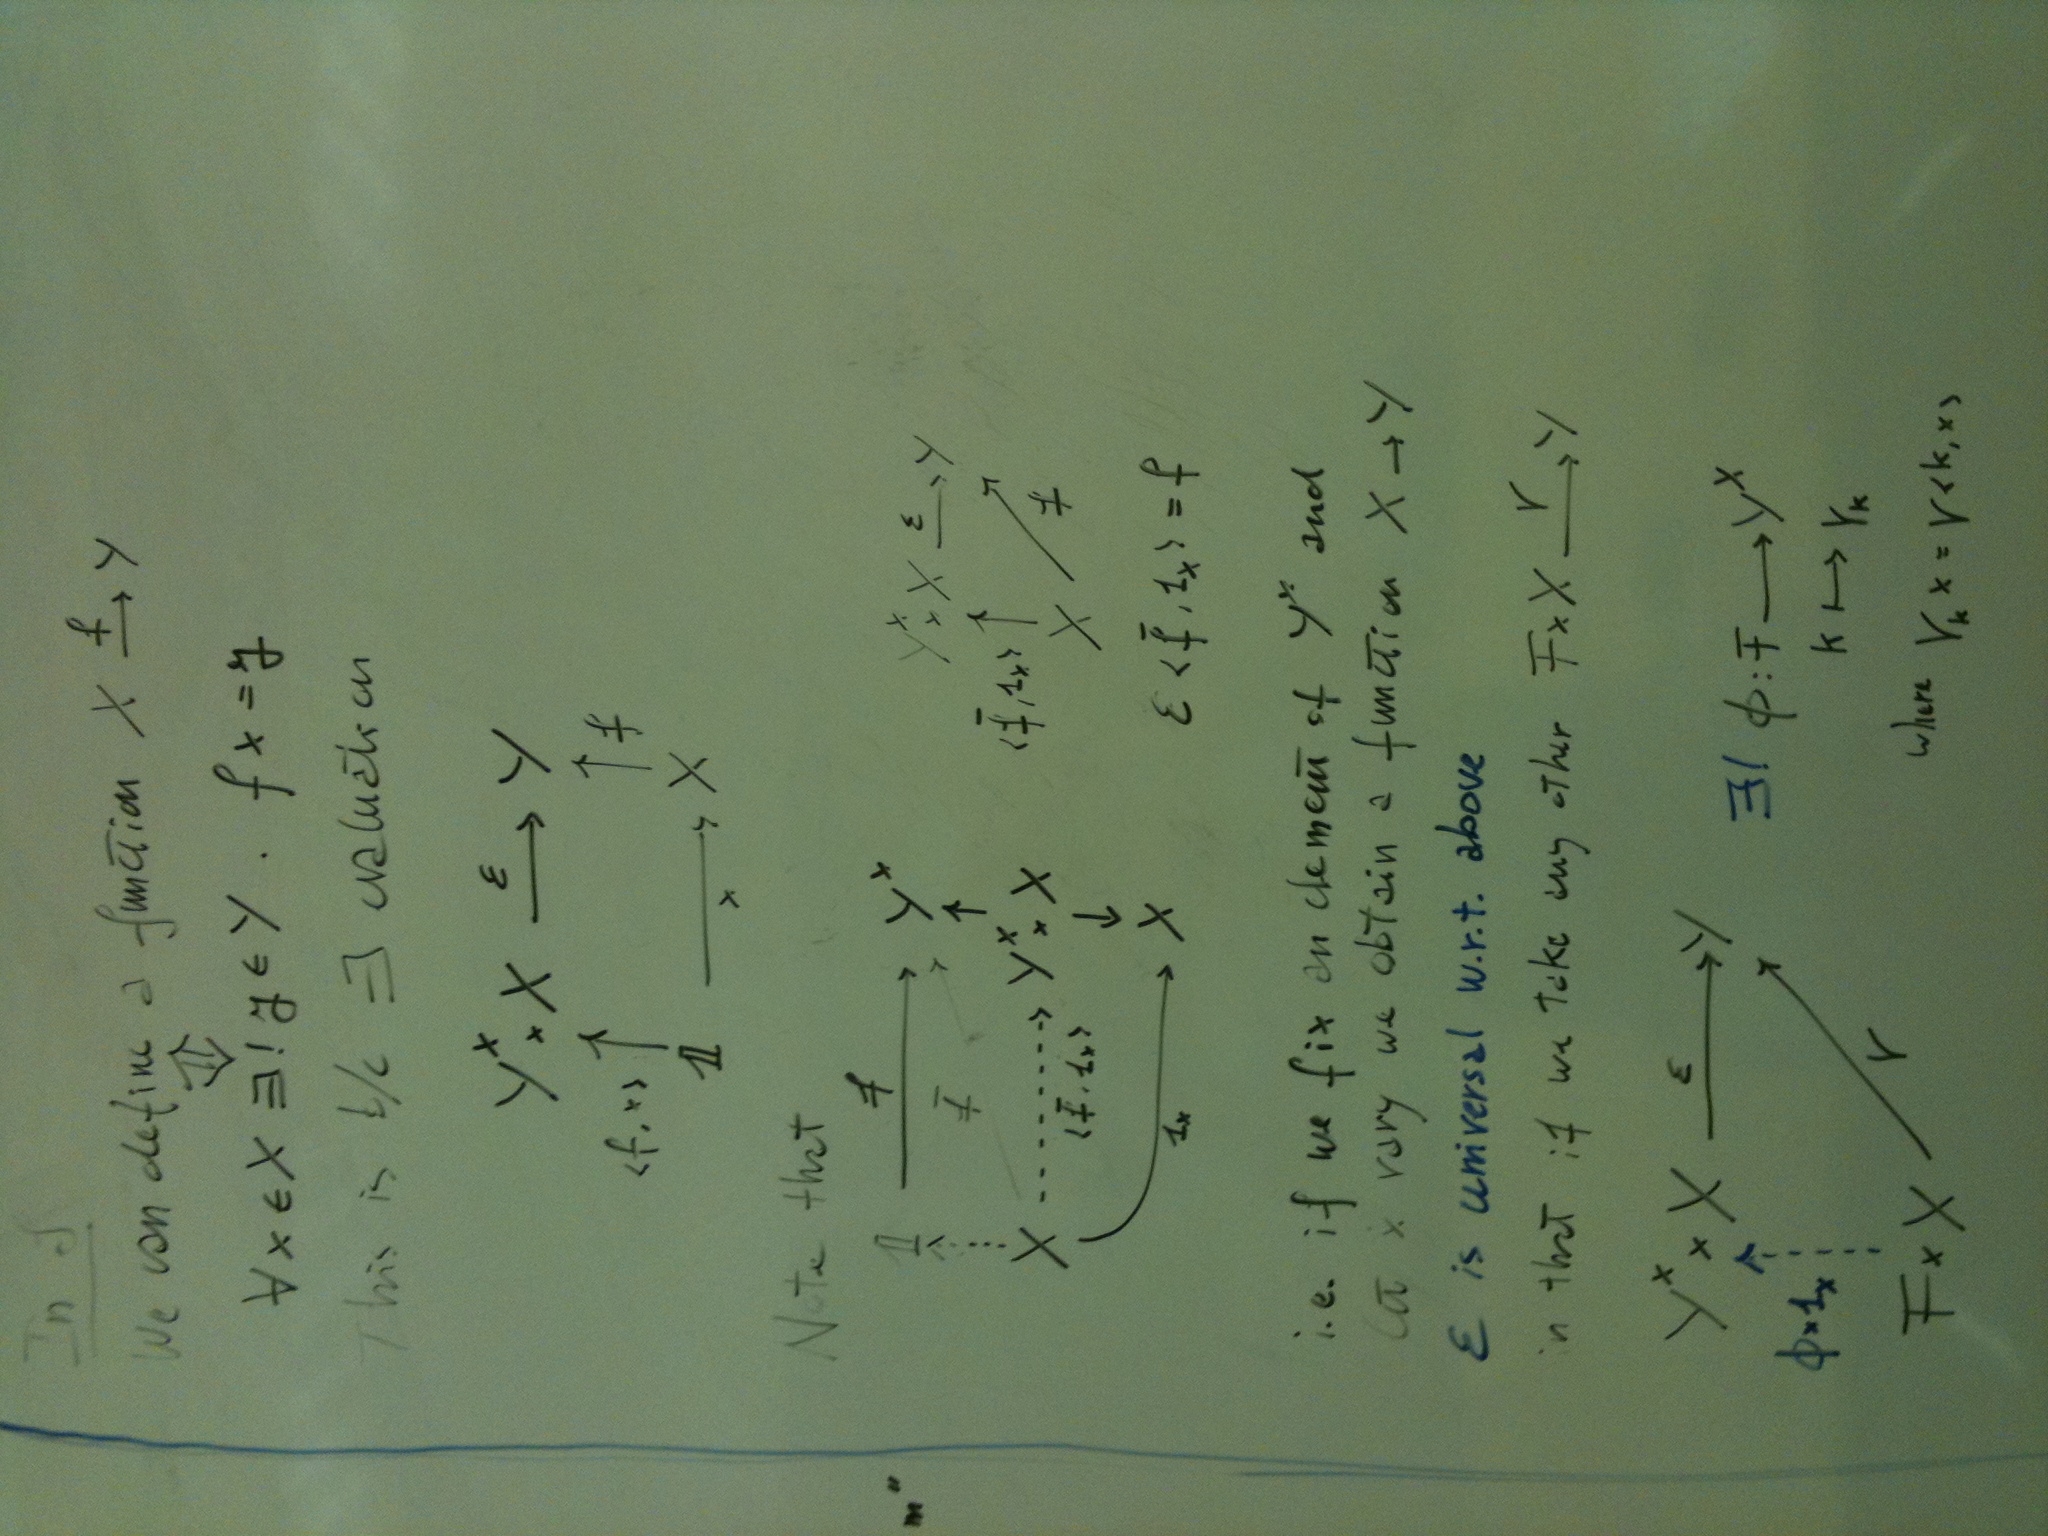 In S
We can define a function X f→ Y
⇕
∀x ∈ X ∃! y ∈ Y . f x = y
This is b/c ∃ evaluation
Y^X × X ε→ Y
<f, x> ↑ ↑ f
𝟙 →x X
Note that
𝟙 f→ Y^X
f̄
X <f̄, 1x> Y^X × X
1x X
Y^X × X ε→ Y
<f̄, 1x> ↑ ↗ f
X
ε <f̄, 1x> = f
i.e. if we fix an element of Y^X and
let x vary we obtain a function X → Y
ε is universal w.r.t. above
in that if we take any other F × X r→ Y
Y^X × X ε→ Y
ϕ × 1x ↑ ↗ r
F × X
∃! ϕ : F → Y^X
k ↦ r_k
where r_k x = r <k, x>
m"